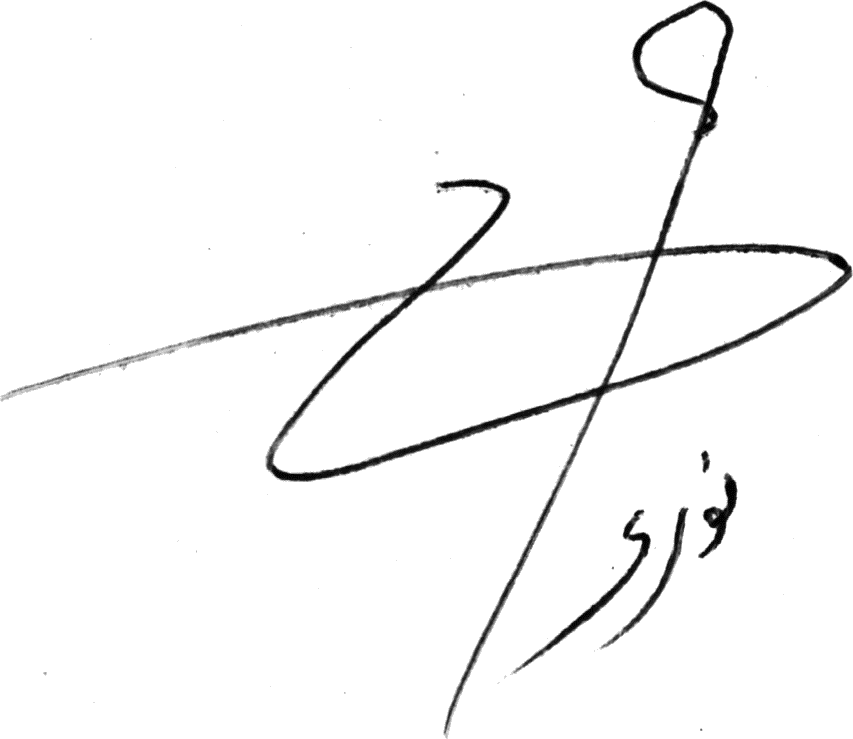 نوری